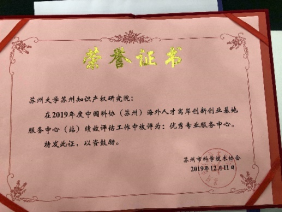 荣誉证书
苏州大学苏州知识产权研究院：
在2019年度中国科协（苏州）海外人才离岸创新创业基地
服务中心（站）绩效评估工作中被评为：优秀专业服务中心。
特发此证，以资鼓励。
苏州市科学技术协会
2019年12月11日